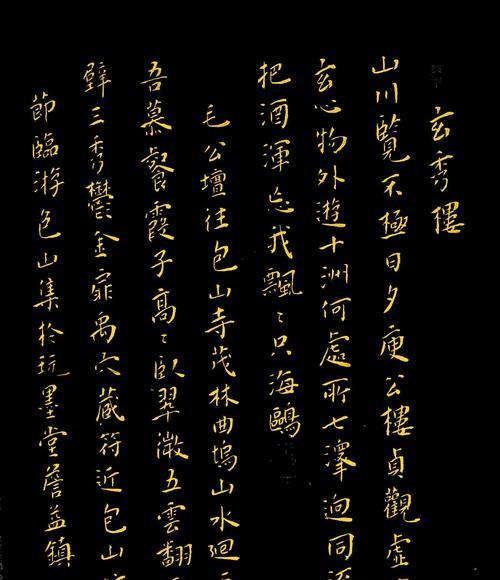 玄秀樓
山川覽不極日夕庾公樓貞觀虛
玄心物外遊十洲何處所七澤迥同
把酒渾忘我飄〻只海鷗
毛公壇往包山寺茂林曲塢山水迴
吾慕餐霞子高〻臥翠微五雲翻
壁三秀鬱金扉禹穴藏符近包山
節臨游包山集於玩墨堂詹益鎮